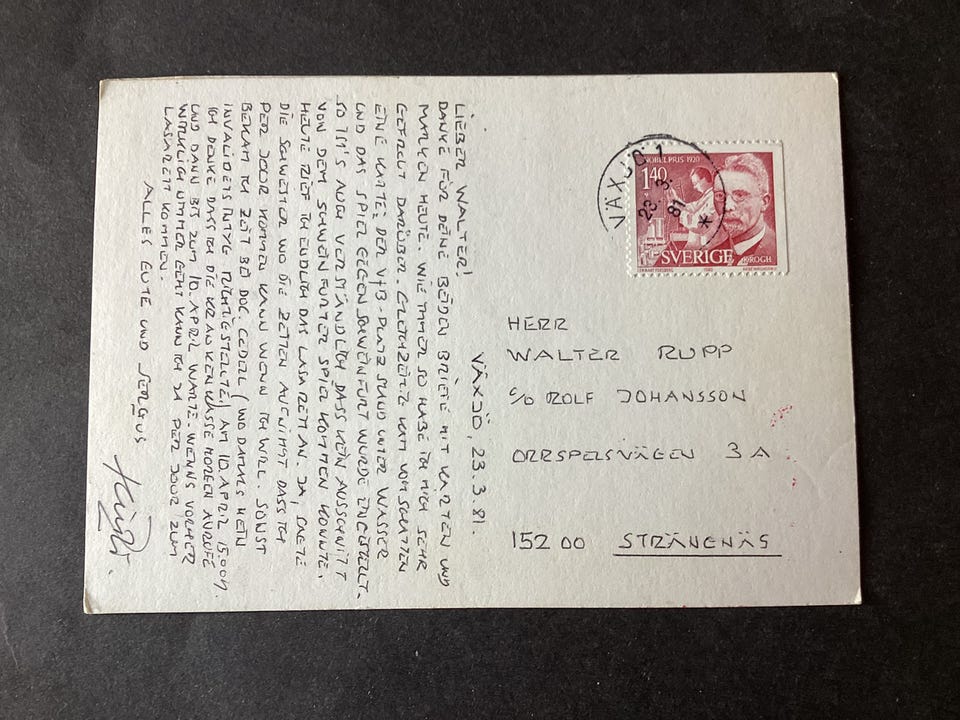 VÄXJÖ, 23.3.81.
LIEBER WALTER!
DANKE FÜR DEINE BEIDEN BRIEFE MIT KARTEN UND
MARKEN HEUTE. WIE IMMER SO HABE ICH MICH SEHR
GEFREUT DARÜBER. GLEICHZEITIG KAM VOM
EINE KARTE. DER VFB-PLATZ STAND UNTER WASSER
UND DAS SPIEL GEGEN SCHWEINFURT WURDE EINGESTELLT.
SO IST'S AUCH VERSTÄNDLICH DASS KEIN AUSSCHNITT
VON DEM SCHWEINFURTER SPIEL KOMMEN KONNTE.
HEUTE RIEF ICH ENDLICH DAS LASARETT AN. JA, SAGTE
DIE SCHWESTER WO DIE ZEITEN AUFNIMMT DASS ICH
PER JOUR KOMMEN KANN WENN ICH WILL. SONST
BEKAM ICH ZEIT BEI DOC. (WO DAMALS MEIN
AM 10. APRIL 15.00H.
ICH DENKE DASS ICH DIE KRANKENKASSE MORGEN ANRUFE
UND DANN BIS ZUM 10. APRIL WARTE. WENNS VORHER
WIRKLICH NIMMER GEHT KANN ICH JA PER JOUR ZUM
LASARETT KOMMEN.
ALLES GUTE UND SERVUS
NOBELPRIS 1920
1.40
SVERIGE
KROGH
1980
VÄXJÖ 1
23. 3.
81
*
HERR
WALTER RUPP
C/O ROLF JOHANSSON
3 A
152 00 STRÄNGNÄS